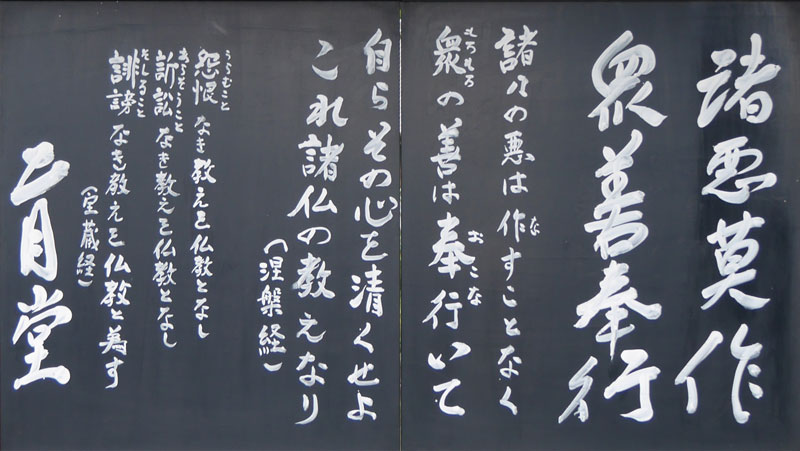 諸悪莫作
衆善奉行
な
諸々の悪は作すことなく
もろもろ おこな
衆の善は奉行いて
自らその心を清くせよ
これ諸仏の教えなり
(涅槃経)
うらむこと
怨恨なき教えを仏教となし
あらそうこと
訴訟なき教えを仏教となし
そしること
誹謗なき教えを仏教と為す
(宝蔵経)
二月堂